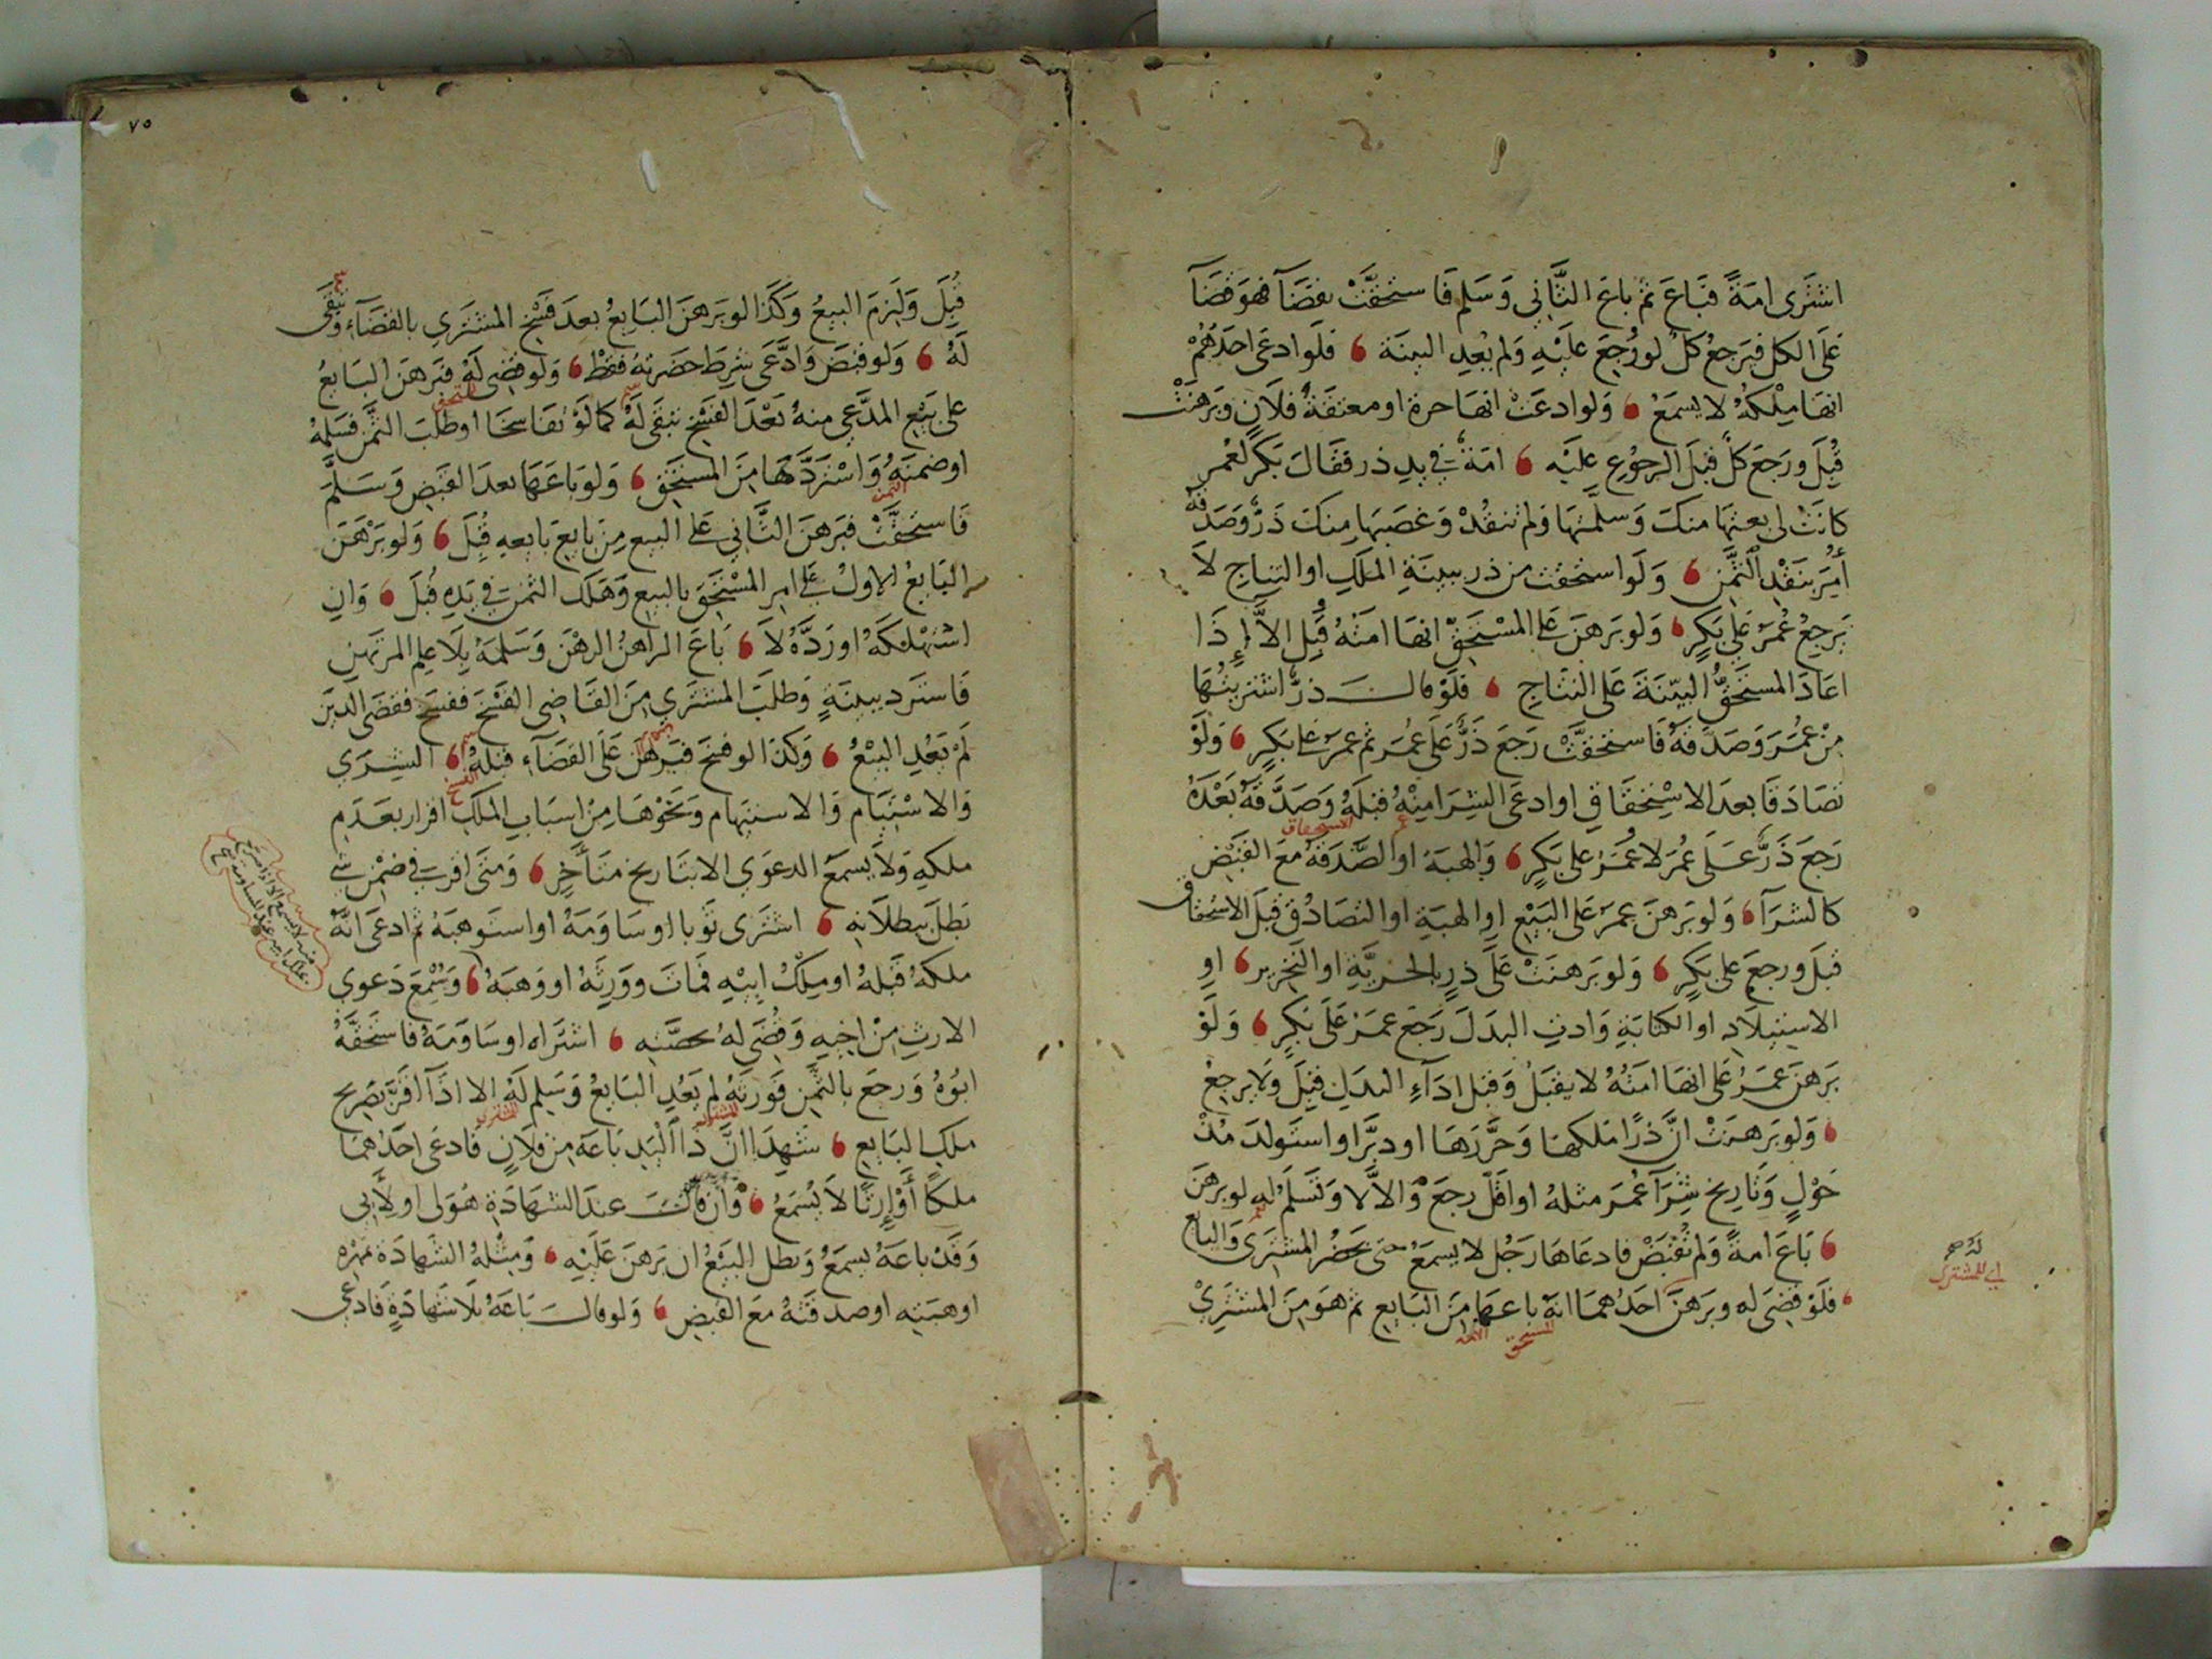 اشترى امة فباع ثم باع الثاني وسلم فاستحقت بقضآ فهو قضآ
على الكل فيرجع كل لو رجع عليه ولم يعد البينة فلو ادعى احدهم
انها ملكه لا يسمع ولو ادعت انها حرة او معتقة فلان وبرهنت
قبل ورجع كل قبل الرجوع عليه امة في يد ذر فقال بكر لعمر
كانت لى بعتها منك وسلمتها ولم تنقد وغصبها منك ذر وصدقه
أمر بنقد الثمن ولو استحقت من ذر ببينة الملك او النتاج لا
يرجع عمر على بكر ولو برهن على المستحق انها امته قبل الا إذا
اعاد المستحق البينة على النتاج فلو قال ذر اشتريتها
من عمر وصدقه فاستحقت رجع ذر على عمر ثم عمر على بكر ولو
تصادقا بعد الاستحقاق او ادعى الشرا منه قبله وصدقه بعده
عمر الاستحقاق
رجع ذر على عمر لا عمر على بكر والهبة او الصدقة مع القبض
كالشرآ ولو برهن عمر على البيع او الهبة او التصادق قبل الاستحقاق
قبل ورجع على بكر ولو برهنت على ذر بالحرية او التحرير او
الاستيلاد او الكتابة وادت البدل رجع عمر على بكر ولو
برهن عمر على انها امته لا يقبل وقبل ادآء البدل قبل ولا يرجع
ولو برهنت ان ذرا ملكها وحررها او دبرا او استولد مذ
حول وتاريخ شرآ عمر مثله او اقل رجع والا لا وتسلم له لو برهن
باع امة ولم تقبض فادعاها رجل لا يسمع حتى يحضر المشترى والبايع
فلو قضى له وبرهن احدهما انه باعها من البايع ثم هو من المشترى
المستحق الامة
اي للمشترى
٧٥
قبل ولزم البيع وكذا لو برهن البايع بعد فسخ المشترى بالقضآء وتبقى
له ولو قبض وادعى شرط حضرته فقط ولو قضى له فبرهن البايع
على بيع المدعى منه بعد الفسخ تبقى له كما لو تفاسخا او طلب الثمن فسلمه
او ضمنه واستردها من المستحق ولو باعها بعد القبض وسلم
الثمن
فاستحقت فبرهن الثاني على البيع من بايع بايعه قبل ولو برهن
البايع الاول على امر المستحق بالبيع وهلك الثمن في يده قبل وان
استهلكه او رده لا باع الراهن الرهن وسلمه بلا علم المرتهن
فاسترد ببينة وطلب المشترى من القاضى الفسخ ففسخ فقضى الدين
لم يعد البيع وكذا لو فسخ فبرهن على القضآء قبله الشرى
الفسخ
والاستيام والاستيهاب ونحوها من اسباب الملك اقرار بعدم
ملكه ولا يسمع الدعوى الا بتاريخ متأخر ومتى اقر في ضمن شى
بطل ببطلانه اشترى ثوبا او ساومه او استوهبه ثم ادعى انه
ملكه قبله او ملك ابيه فمات وورثه او وهبه وسمع دعوى
الارث من اخيه وقضى له بحصته اشتراه او ساومه فاستحقه
ابوه ورجع بالثمن فورثه لم يعد البايع وسلم له الا اذا اقر بصريح
المشترى
ملك البايع شهدا ان ذا اليد باعه من فلان فادعى احدهما
ملكا أو إرثا لا يسمع وان قال عند الشهادة هو لى او لأبى
وقد باعه يسمع وبطل البيع ان برهن عليه ومثله الشهادة بمهره
او هبته او صدقته مع القبض ولو قال باعه بلا شهادة فادعى